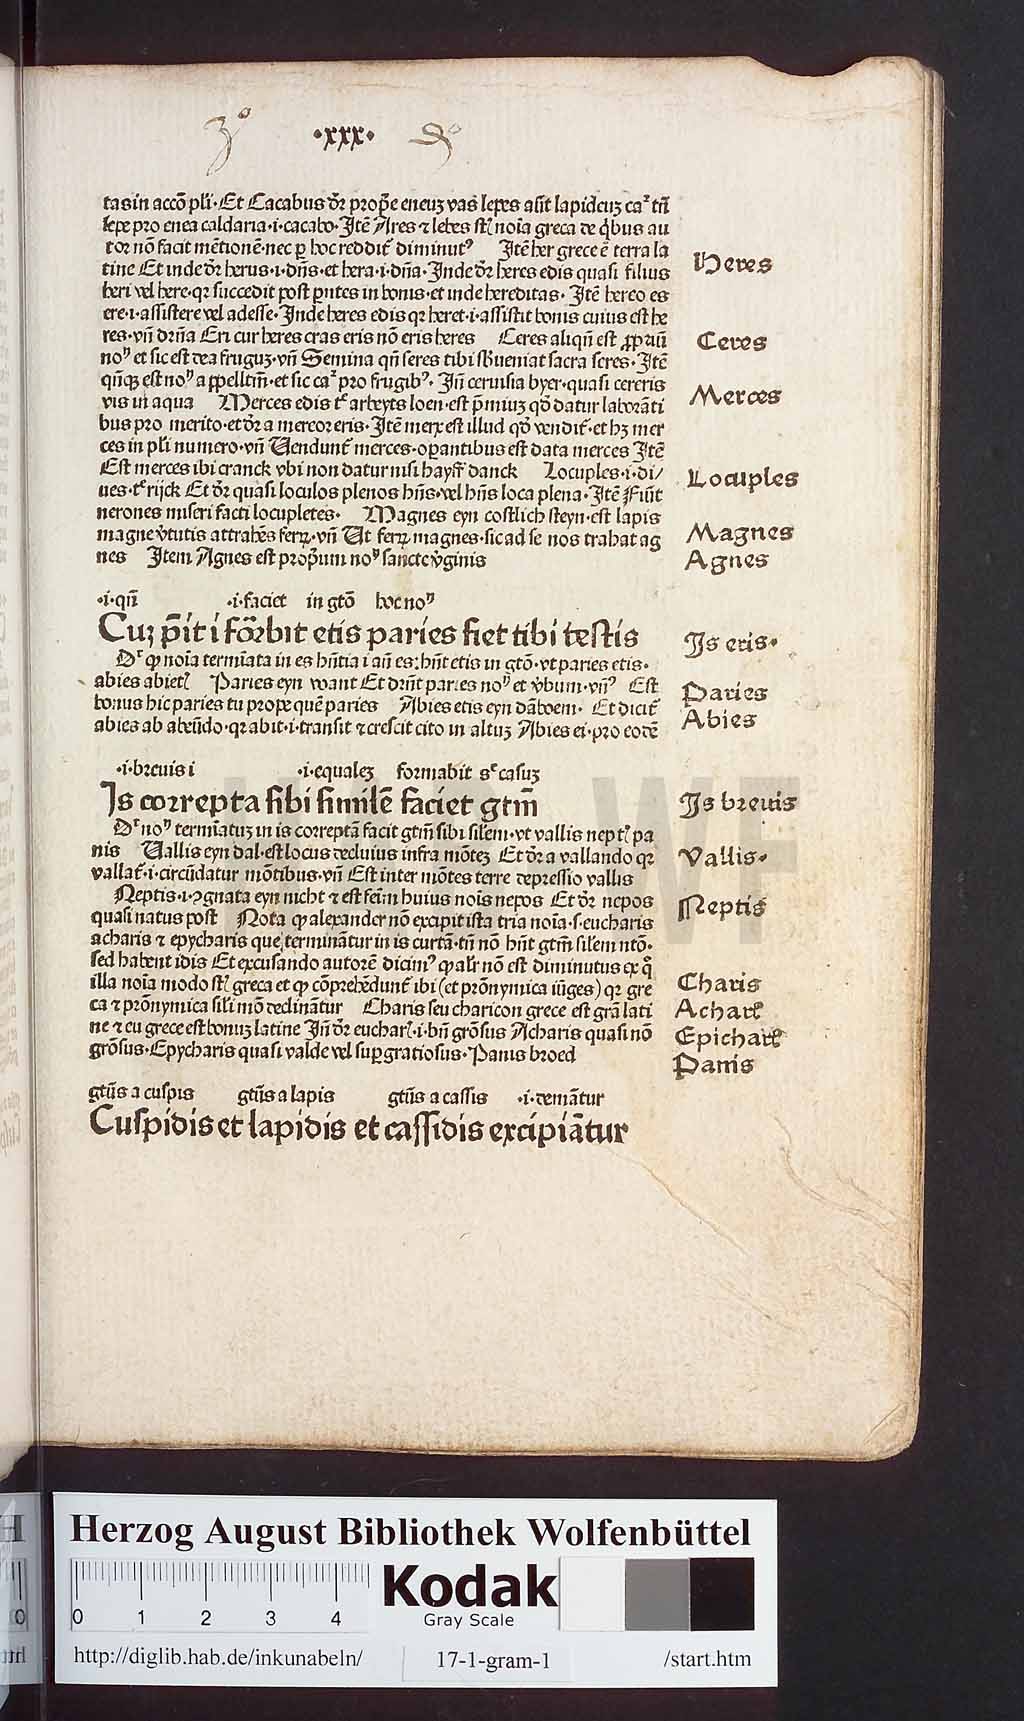 ·xxx·
tas in accō pľi·Et Cacabus dr̄ propᵉe eneuȝ vas lepes aſit lapideuȝ caᵗ tm̄
lepe pro enea caldaria·i·cacabo·Itē Ares ⁊ lebes ſt̄ noīa greca de qͥbus au
tor nō facit mētionē·nec ꝑ hoc reddit᷑ diminutꝰ Itē her grece ē terra la
tine Et inde dr̄ herus·i·dn̄s·et hera·i·dn̄a·Inde dr̄ heres edis quaſi filius
heri vel here·qꝛ ſuccedit poſt pn̄tes in bonis·et inde hereditas·Itē hereo es
ere·i·aſſiſtere vel adeſſe·Inde heres edis qꝛ heret·i·aſſiſtit bonis cuius eſt he
res·vn̄ dr̄na Eri cur heres cras eris nō eris heres Ceres aliqn̄ eſt ꝓpriū
noᵐ et ſic eſt dea fruguȝ·vn̄ Semina qn̄ ſeres tibi ſbueniat ſacra ſeres·Itē
qn̄qȝ eſt noᵐ appelltm̄·et ſic caᵗ pro frugibꝰ·In̄ ceruiſia byer·quaſi cereris
vis in aqua Merces edis t᷑ arbeyts loen·eſt p̄miuȝ qď datur laborāti
bus pro merito·et dr̄ a mercor eris·Itē merx eſt illud qď vendit᷑·et hȝ mer
ces in pľi numero·vn̄ Uendunt᷑ merces·oꝑantibus eſt data merces Itē
Eſt merces ibi cranck vbi non datur niſi hayſſ danck Locuples·i·di/
ues·t᷑ rijck Et dr̄ quaſi loculos plenos hn̄s·vel hn̄s loca plena·Itē Fiūt
nerones miſeri facti locupletes· Magnes eyn coſtlich ſteyn·eſt lapis
magne v̓tutis attrahēs ferꝝ·vn̄ Ut ferꝝ magnes·ſic ad ſe nos trahat ag
nes Item Agnes eſt propᵉum noᵐ ſancte v̓ginis
Heres
Ceres
Merces
Locuples
Magnes
Agnes
·i·qn̄ ·i·faciet in gtō hoc noᵐ
Cuȝ p̄it i fōrbit etis paries fiet tibi teſtis
Dᷓ ꝙ noīa termīata in es hn̄tia i an̄ es:hn̄t etis in gtō·vt paries etis·
abies abietꝭ Paries eyn want Et dr̄nt paries noᵐ et v̓bum·vn̄ꝰ Eſt
bonus hic paries tu prope quē paries Abies etis eyn dāboem· Et dicit᷑
abies ab abeūdo·qꝛ abit·i·tranſit ⁊ creſcit cito in altuȝ Abies ei·pro eodē
Is eris·
Paries
Abies
·i·breuis i ·i·equaleȝ formabit ſᶜ caſuȝ
Is correpta ſibi ſimilē faciet gtm̄
Dᷓ noᵐ termīatuȝ in is correptā facit gtm̄ ſibi ſiľem·vt vallis neptꝭ pa
nis Uallis eyn dal·eſt locus decliuius infra mōteȝ Et dr̄ a vallando qꝛ
vallat᷑·i·circūdatur mōtibus·vn̄ Eſt inter mōtes terre depreſſio vallis
Neptis·i·ꝯgnata eyn nicht ⁊ eſt fem̄ huius noīs nepos Et dr̄ nepos
quaſi natus poſt Nota ꝙ alexander nō excipit iſta tria noīa·ſ·eucharis
acharis ⁊ epycharis que termināntur in is curtā·tn̄ nō hn̄t gtm̄ ſiľem ntō·
ſed habent idis Et excuſando autorē dicimꝰ ꝙ alr̄ nō eſt diminutus ex qͦ
illa noīa modo ſt̄ greca et ꝙ cōprehēdunt᷑ ibi (et prōnymica iūges) qꝛ gre
ca ⁊ prōnymica ſiľi mō declināntur Charis ſeu charicon grece eſt gr̄a lati
ne ⁊ eu grece eſt bonuȝ latine In̄ dr̄ eucharꝭ·i·bn̄ grōſus Acharis quaſi nō
grōſus·Epycharis quaſi valde vel ſuꝑgratioſus·Panis broed
Is breuis
Vallis·
Neptis
Charis
Acharꝭ
Epicharꝭ
Panis
gtūs a cuſpis gtūs a lapis gtūs a caſſis ·i·demāntur
Cuſpidis et lapidis et caſſidis excipiāntur
Herzog August Bibliothek Wolfenbüttel
0 1 2 3 4
Kodak
Gray Scale
http://diglib.hab.de/inkunabeln/ 17-1-gram-1 /start.htm